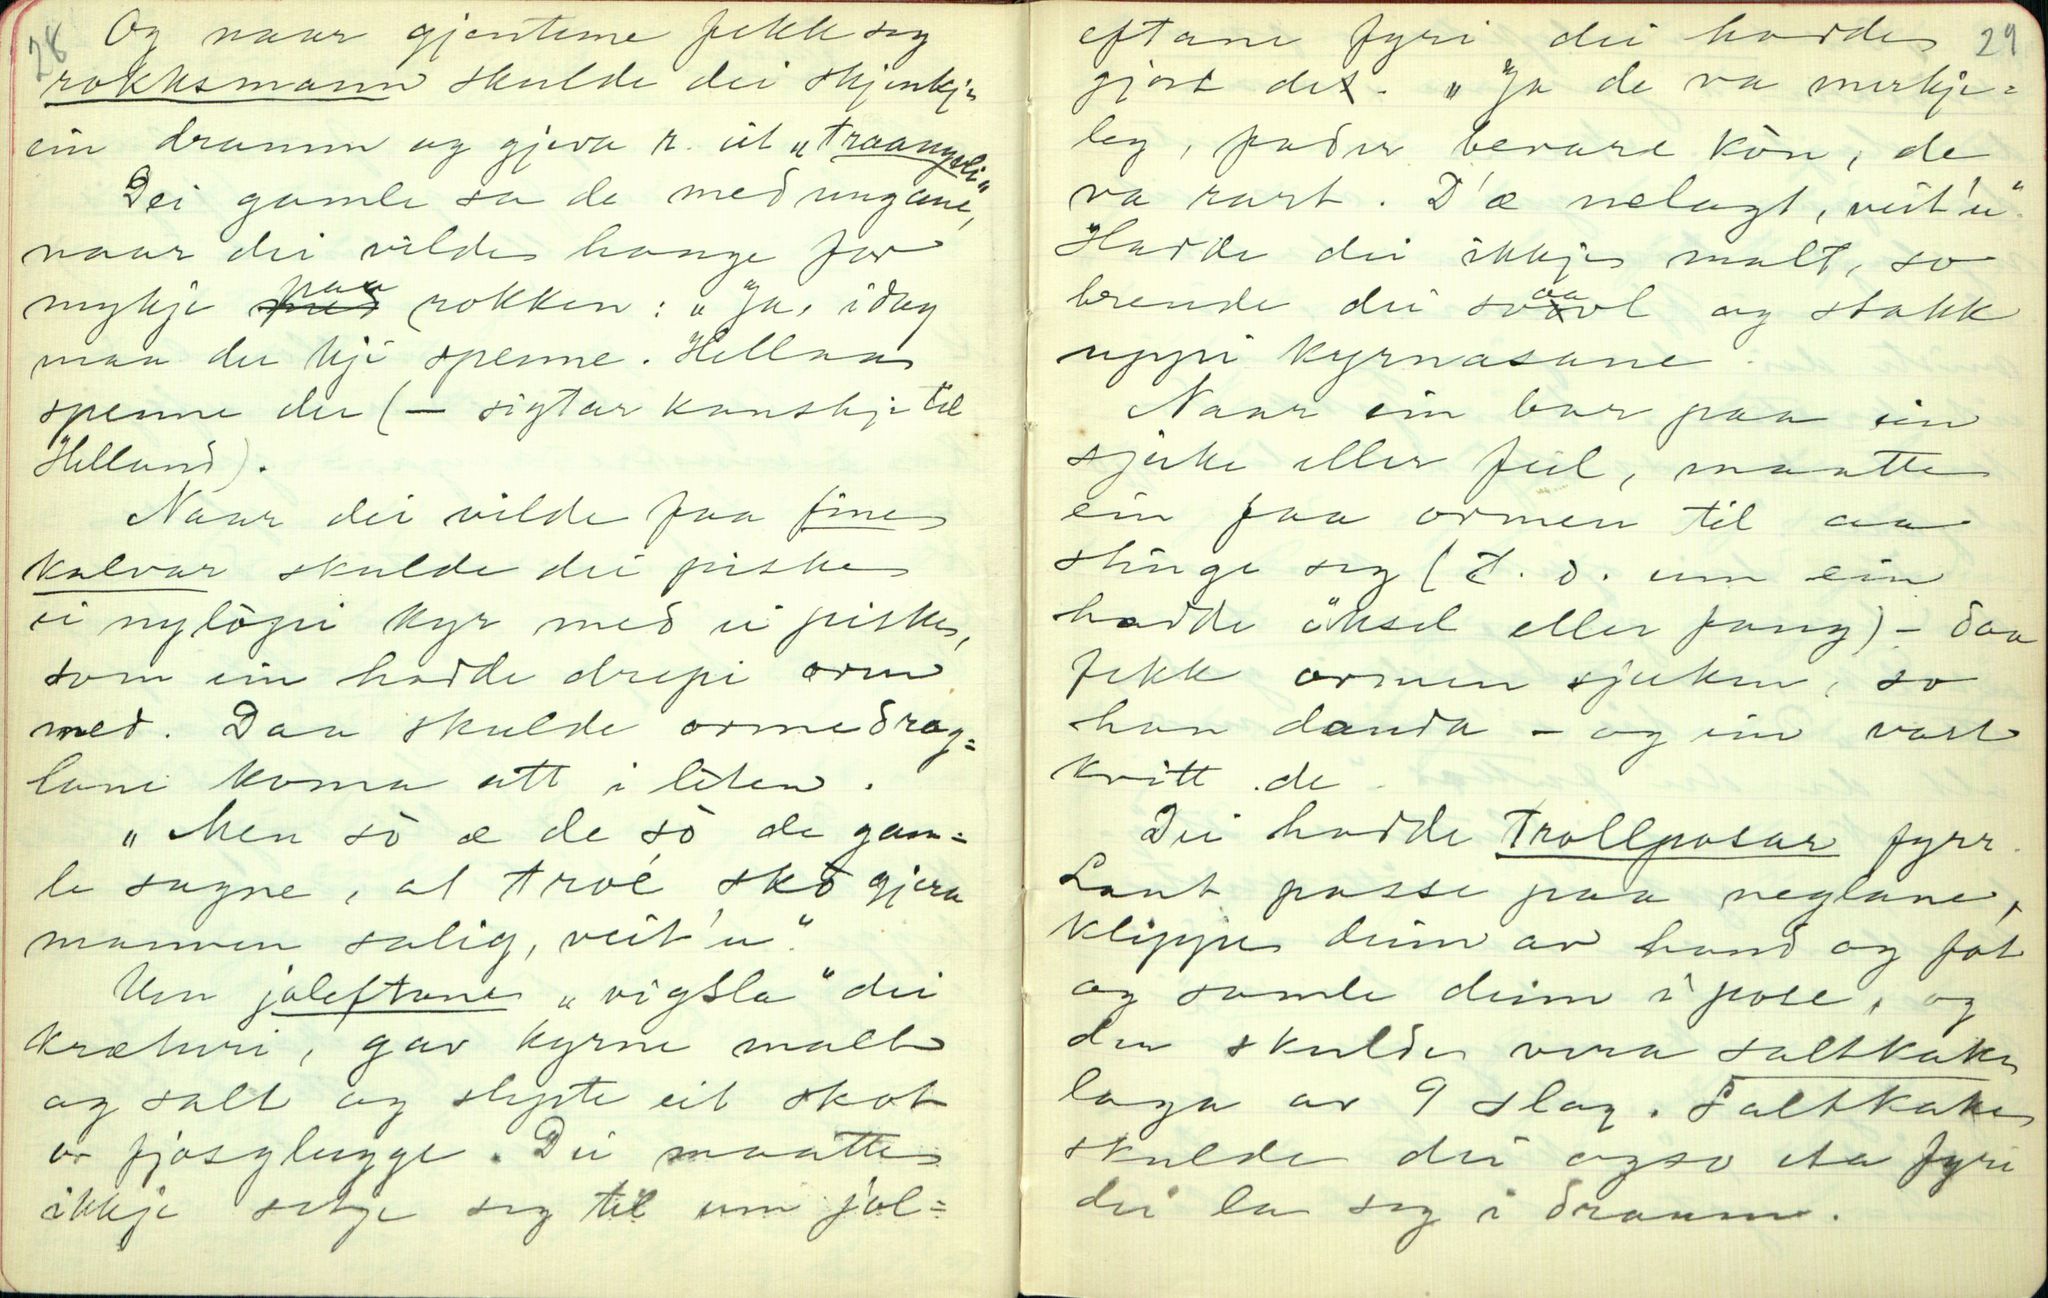 28
Og naar gjentene fekk seg
rokksmann skulde dei skjenkje
ein dramm og gjeva r. eit „traangsli“
Dei gamle sa de med ungane,
naar dei vilde hange for
mykje paa rokken: „Ja, idag
maa du kje spenne. Hellaa
spenne du (– sigtar kanskje til
Helland).
Naar dei vilde faa fine
kalvar skulde dei piske
ei nylöpi kyr med ei piske,
som ein hadde drepi orm
med. Daa skulde ormedrag=
lane koma att i leten.
„Men sò æ de sò de gam=
le sagne, at troé skò gjera
mannen salig, veit'u“.
Um joleftane „vigsla“ dei
kræturi, gav kyrne malt
og salt og slepte eit skot
or fjosglugge. Dei maatte
ikkje setje seg til um jol=
29
eftane fyri dei hadde
gjort det. „Ja de va merkje=
leg, fader bevare kòn, de
va rart. D'æ nelagt, veit'u“.
Hadde dei ikkje malt, so
brende dei svaavl og stakk
uppi kyrnasane.
Naar ein bar paa ein
sjuke eller feil, maatte
ein faa ormen til aa
stinge seg (t. d. um ein
hadde öksel eller fang) – daa
fekk ormen sjuken, so
han dauda – og ein vart
kvitt de.
Dei hadde trollposar fyrr.
Laut passe paa neglane,
klippe deim av hand og fot
og samle deim i pose, og
der skulde vera saltkake
laga av 9 slag. Saltkake
skulde dei ogso eta fyri
dei la seg i draum.